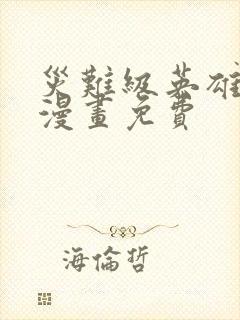 災難級英雄
漫畫免費
海倫哲